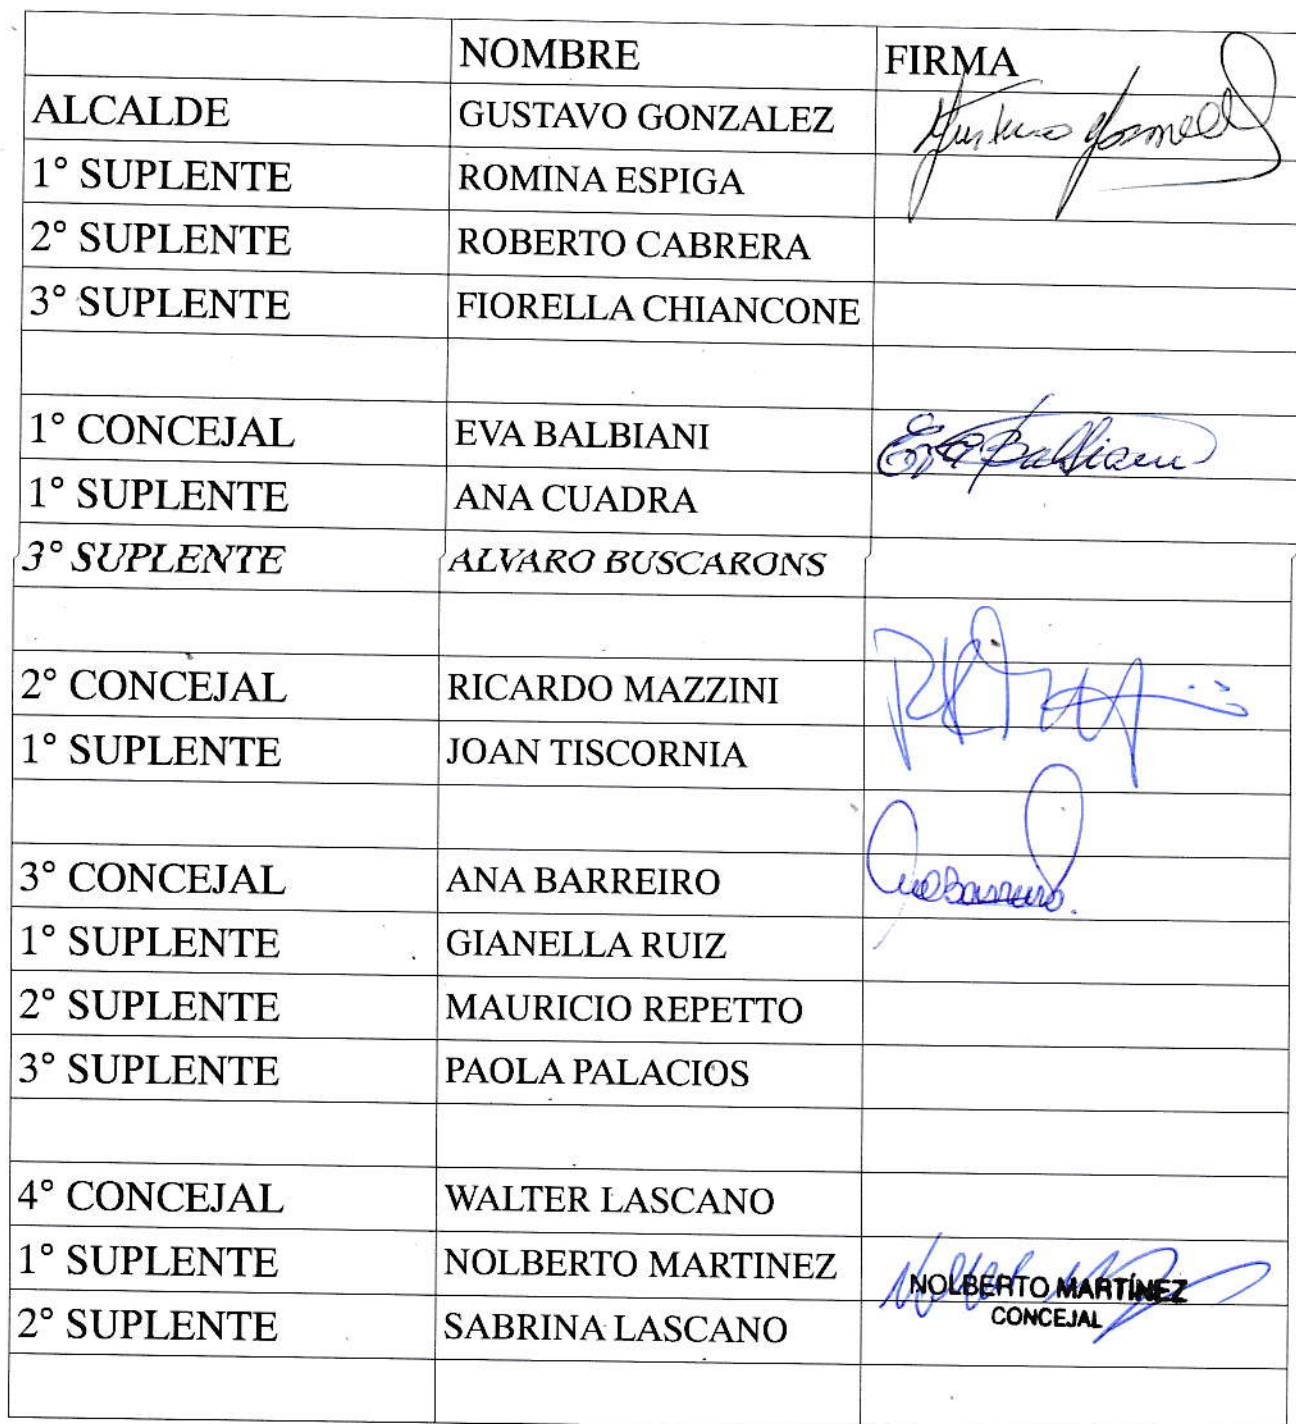 NOMBRE FIRMA
ALCALDE GUSTAVO GONZALEZ Gustavo Gonzalez
1° SUPLENTE ROMINA ESPIGA
2° SUPLENTE ROBERTO CABRERA
3° SUPLENTE FIORELLA CHIANCONE
1° CONCEJAL EVA BALBIANI Eva Balbiani
1° SUPLENTE ANA CUADRA
3° SUPLENTE ALVARO BUSCARONS
2° CONCEJAL RICARDO MAZZINI
1° SUPLENTE JOAN TISCORNIA
3° CONCEJAL ANA BARREIRO Ana Barreiro.
1° SUPLENTE GIANELLA RUIZ
2° SUPLENTE MAURICIO REPETTO
3° SUPLENTE PAOLA PALACIOS
4° CONCEJAL WALTER LASCANO
1° SUPLENTE NOLBERTO MARTINEZ NOLBERTO MARTÍNEZ
CONCEJAL
2° SUPLENTE SABRINA LASCANO